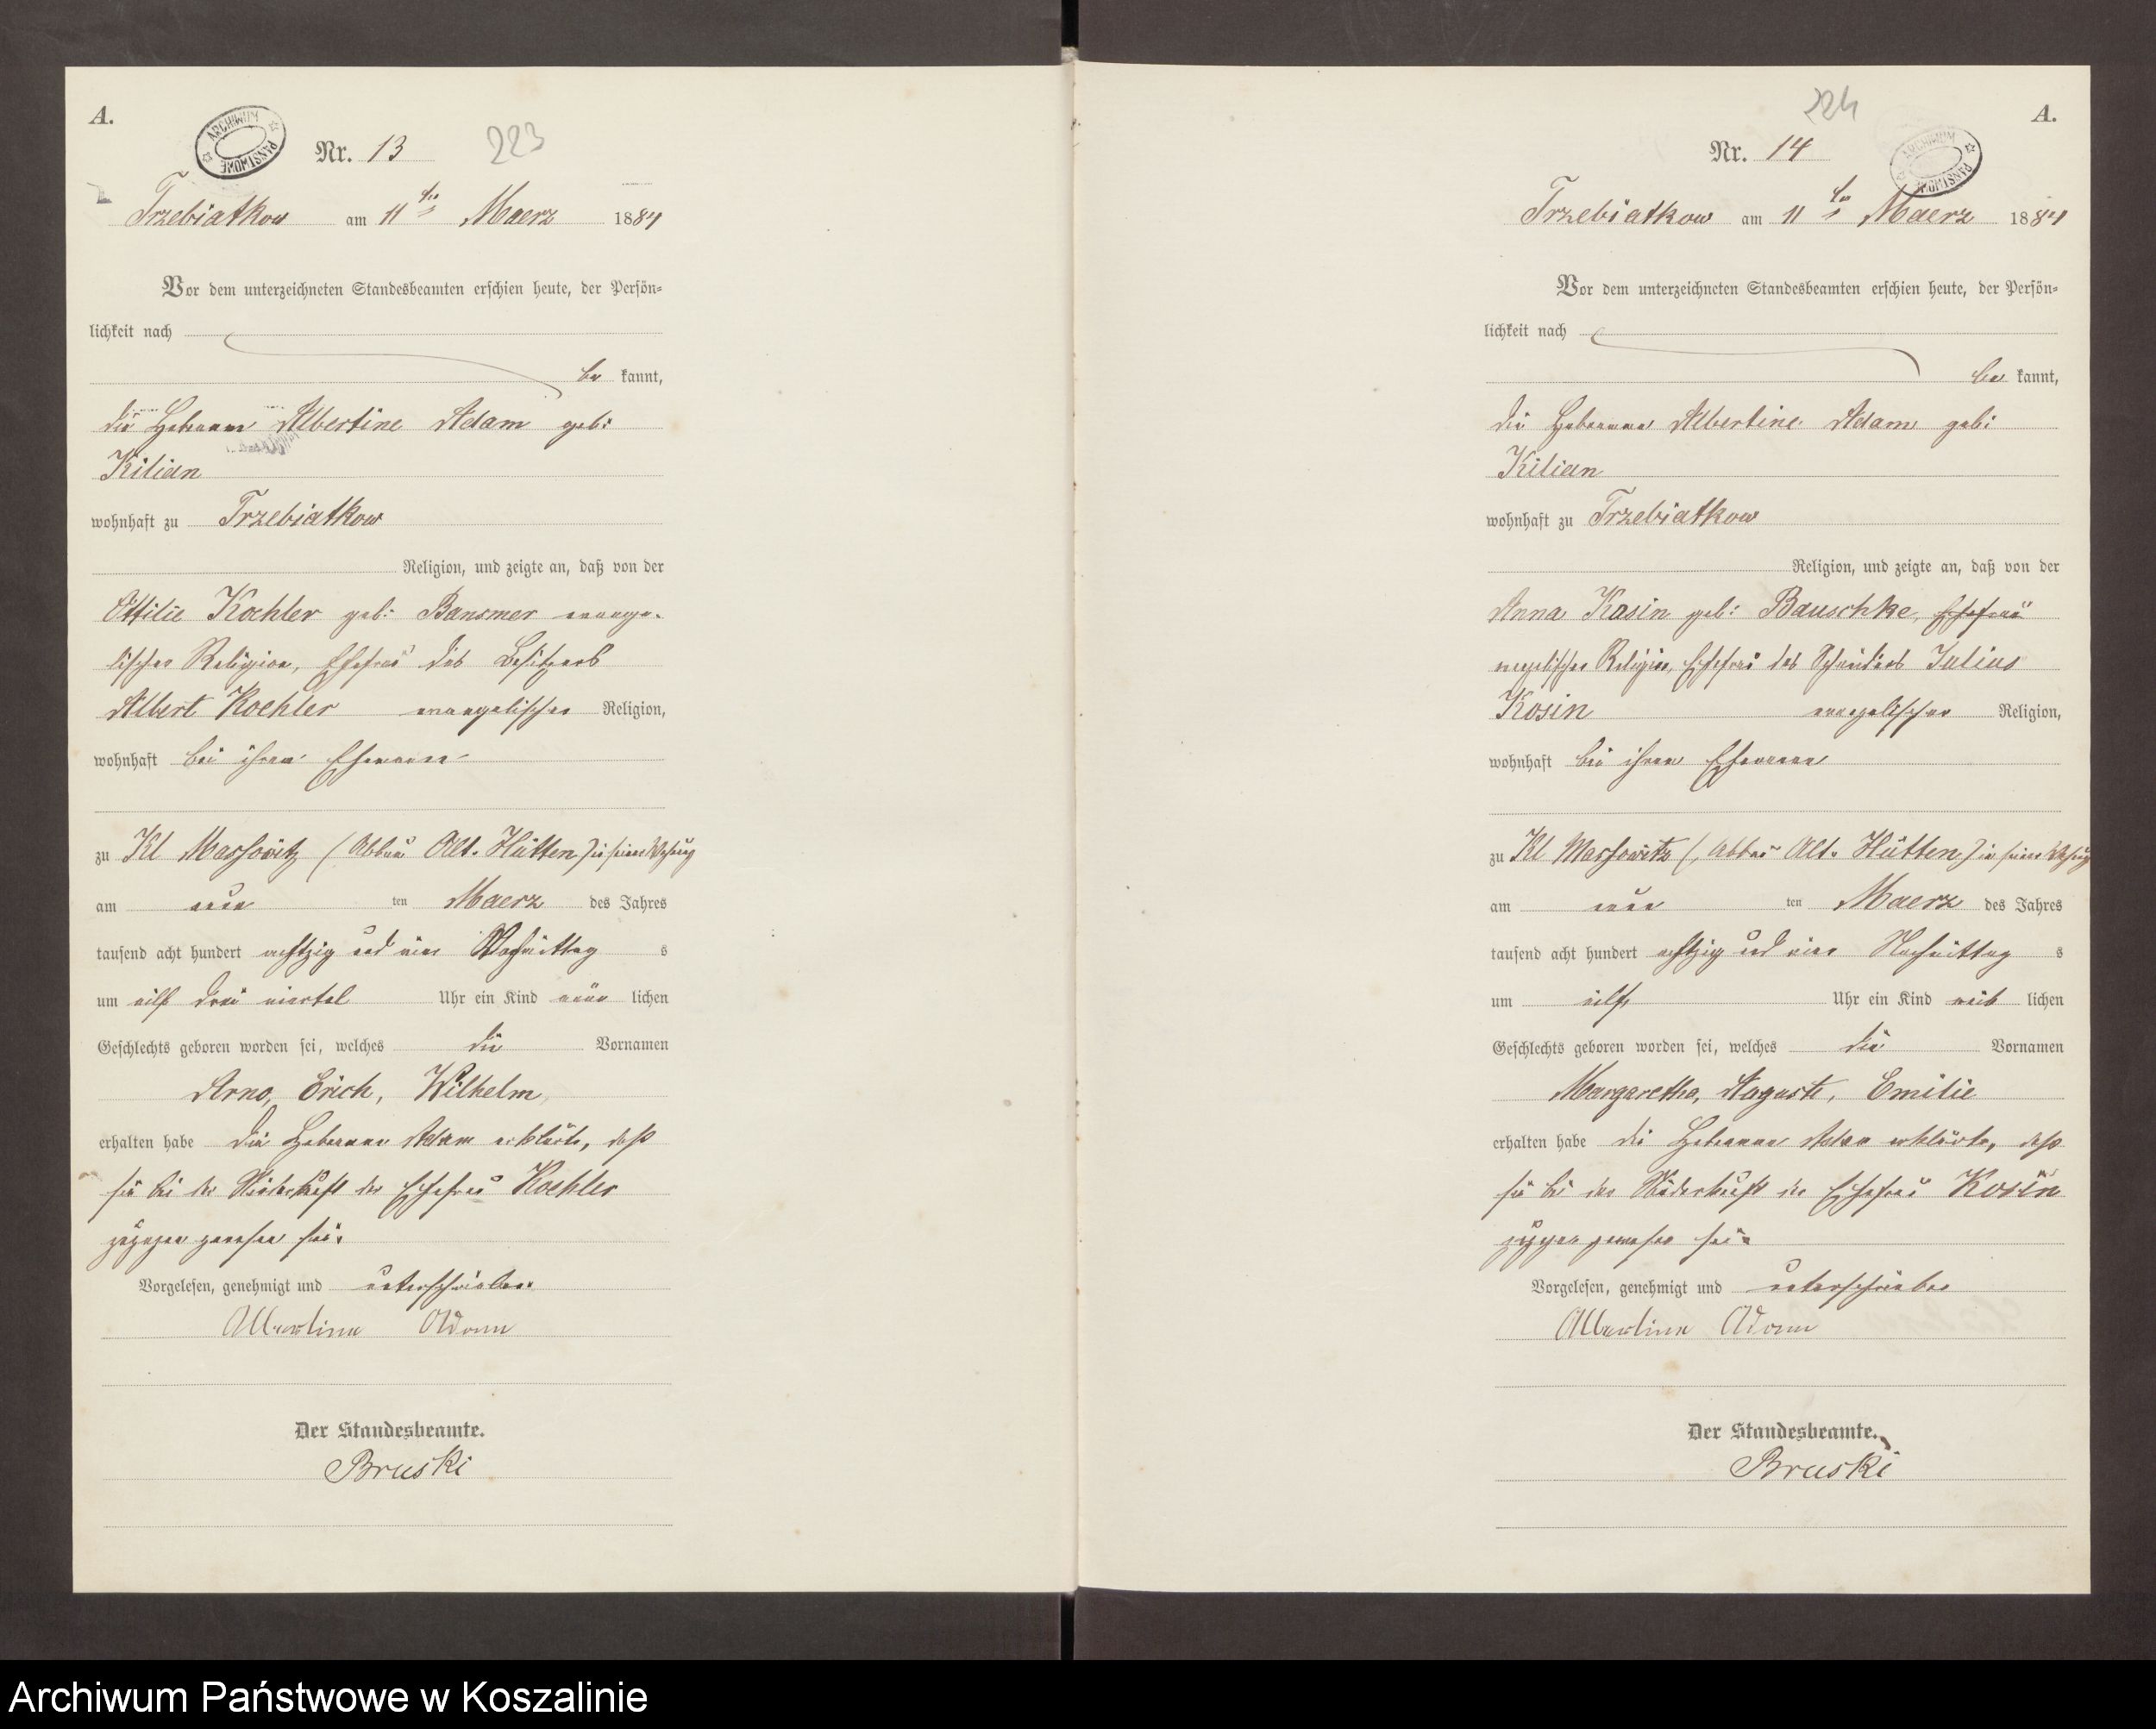 A.
ARCHIWUM PAŃSTWOWE
Nr. 13
223
Trzebiatkow am 11ten Maerz 1884
Vor dem unterzeichneten Standesbeamten erschien heute, der Persön=
lichkeit nach
be kannt,
die Hebamme Albertine Adam geb:
Kilian
wohnhaft zu Trzebiatkow
Religion, und zeigte an, daß von der
Ottilie Koehler geb: Bansmer evange-
lischer Religion, Ehefrau des Besitzers
Albert Koehler evangelischer Religion,
wohnhaft bei ihrem Ehemann
zu Kl Massowitz (Abbau Alt. Hütten) in seiner
am ten Maerz des Jahres
tausend acht hundert achtzig und vier Nachmittag s
um elf drei viertel Uhr ein Kind männ lichen
Geschlechts geboren worden sei, welches die Vornamen
Arno, Erich, Wilhelm
erhalten habe die Hebamme Adam erklärte, daß
sie bei der Niederkunft der Ehefrau Koehler
zugegen gewesen sei.
Vorgelesen, genehmigt und unterschrieben
Albertine Adam
Der Standesbeamte.
Bruski
224
A.
Nr. 14
ARCHIWUM PAŃSTWOWE
Trzebiatkow am 11ten Maerz 1884
Vor dem unterzeichneten Standesbeamten erschien heute, der Persön=
lichkeit nach
be kannt,
die Hebamme Albertine Adam geb:
Kilian
wohnhaft zu Trzebiatkow
Religion, und zeigte an, daß von der
Anna Kosin geb: Bauschke, Ehefrau
evangelischer Religion, Ehefrau des Schneiders Julius
Kosin evangelischer Religion,
wohnhaft bei ihrem Ehemann
zu Kl Massowitz (Abbau Alt. Hütten) in seiner
am ten Maerz des Jahres
tausend acht hundert achtzig und vier Nachmittag s
um elf Uhr ein Kind weib lichen
Geschlechts geboren worden sei, welches die Vornamen
Margaretha, Auguste, Emilie
erhalten habe die Hebamme Adam erklärte, daß
sie bei der Niederkunft der Ehefrau Kosin
zugegen gewesen sei.
Vorgelesen, genehmigt und unterschrieben
Albertine Adam
Der Standesbeamte.
Bruski
Archiwum Państwowe w Koszalinie